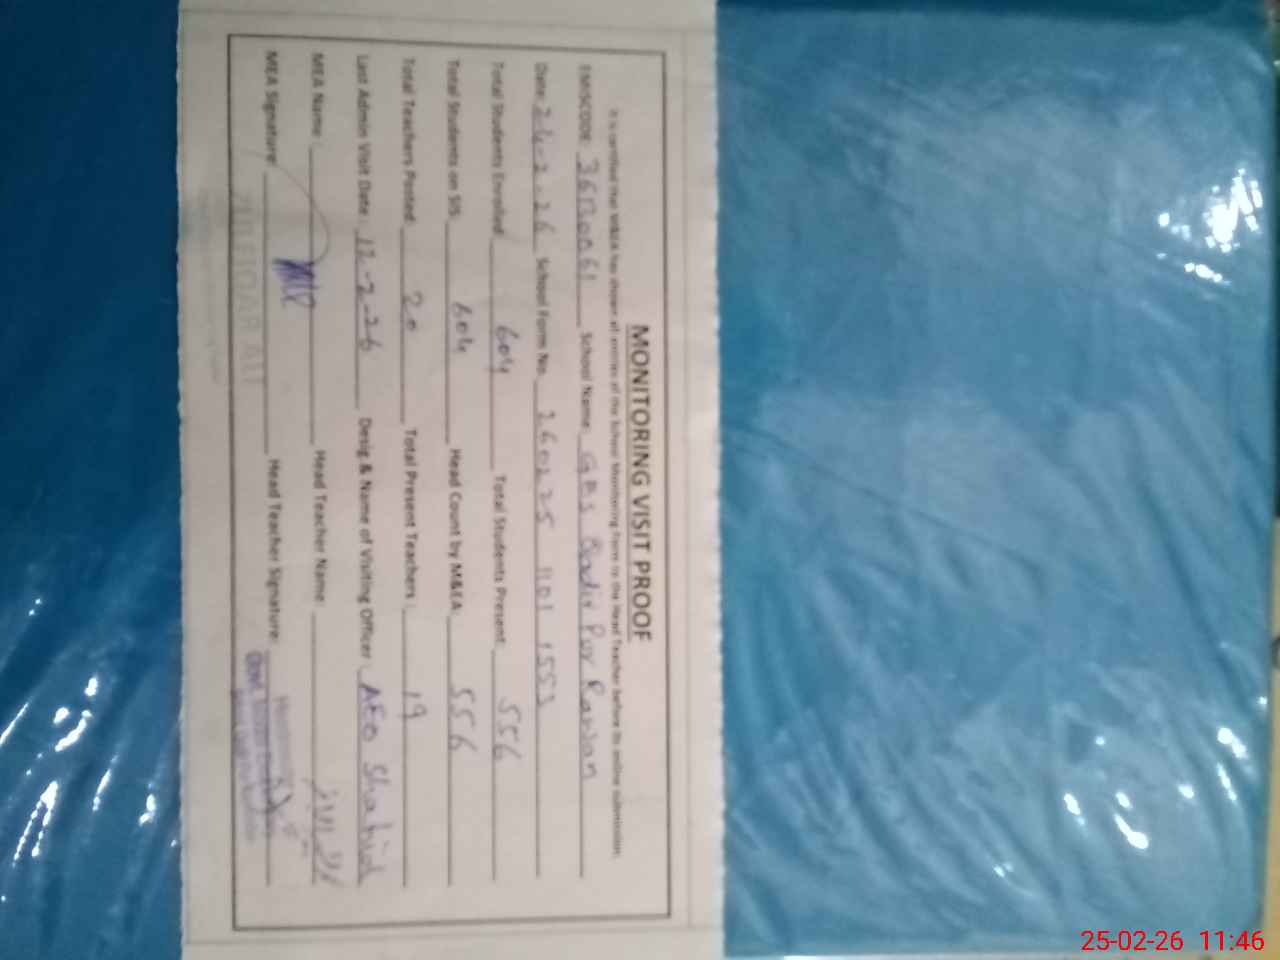 MONITORING VISIT PROOF
It is certified that M&EA has shown all entries of the School Monitoring Form to the Head Teacher before its online submission.
EMISCODE 36130061 School Name GPS Qadir Pur Rawan
Date: 24-2-26 School Form No. 260225 1101 1553
Total Students Enrolled 604 Total Students Present 556
Total Students on SIS 604 Head Count by M&EA: 556
Total Teachers Posted 20 Total Present Teachers: 19
Last Admin Visit Date: 12-2-26 Desig & Name of Visiting Officer AEO Shahid
MEA Name: Head Teacher Name:
MEA Signature: Head Teacher Signature:
ZULFIQAR ALI
25-02-26 11:46